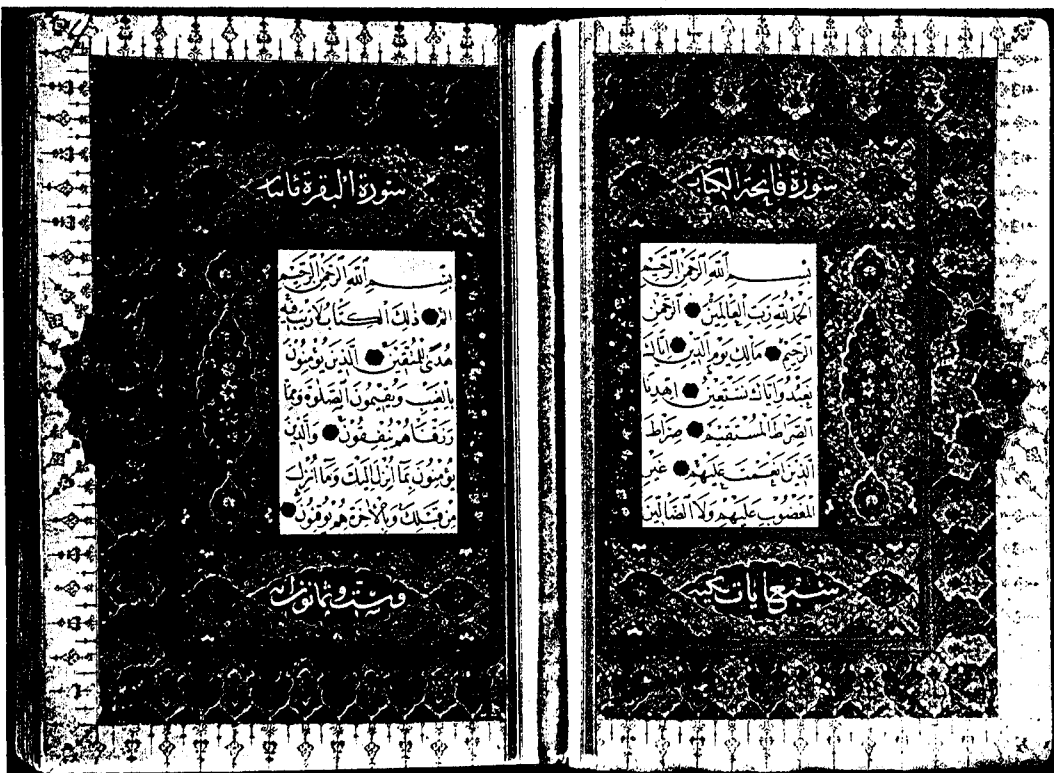 سورة فاتحة الكتاب
بِسْمِ اللّٰهِ الرَّحْمٰنِ الرَّحِيْمِ
اَلْحَمْدُ لِلّٰهِ رَبِّ الْعَالَمِيْنَ الرَّحْمٰنِ
الرَّحِيْمِ مَالِكِ يَوْمِ الدِّيْنِ اِيَّاكَ
نَعْبُدُ وَاِيَّاكَ نَسْتَعِيْنُ اِهْدِنَا
الصِّرَاطَ الْمُسْتَقِيْمَ صِرَاطَ
الَّذِيْنَ اَنْعَمْتَ عَلَيْهِمْ غَيْرِ
الْمَغْضُوْبِ عَلَيْهِمْ وَلَا الضَّالِّيْنَ
سبع ايات
سورة البقرة
بِسْمِ اللّٰهِ الرَّحْمٰنِ الرَّحِيْمِ
الم ذٰلِكَ الْكِتَابُ لَا رَيْبَ فِيْهِ
هُدًى لِلْمُتَّقِيْنَ اَلَّذِيْنَ يُؤْمِنُوْنَ
بِالْغَيْبِ وَيُقِيْمُوْنَ الصَّلٰوةَ وَمِمَّا
رَزَقْنَاهُمْ يُنْفِقُوْنَ وَالَّذِيْنَ
يُؤْمِنُوْنَ بِمَا اُنْزِلَ اِلَيْكَ وَمَا اُنْزِلَ
مِنْ قَبْلِكَ وَبِالْاٰخِرَةِ هُمْ يُوْقِنُوْنَ
وست وثمانون